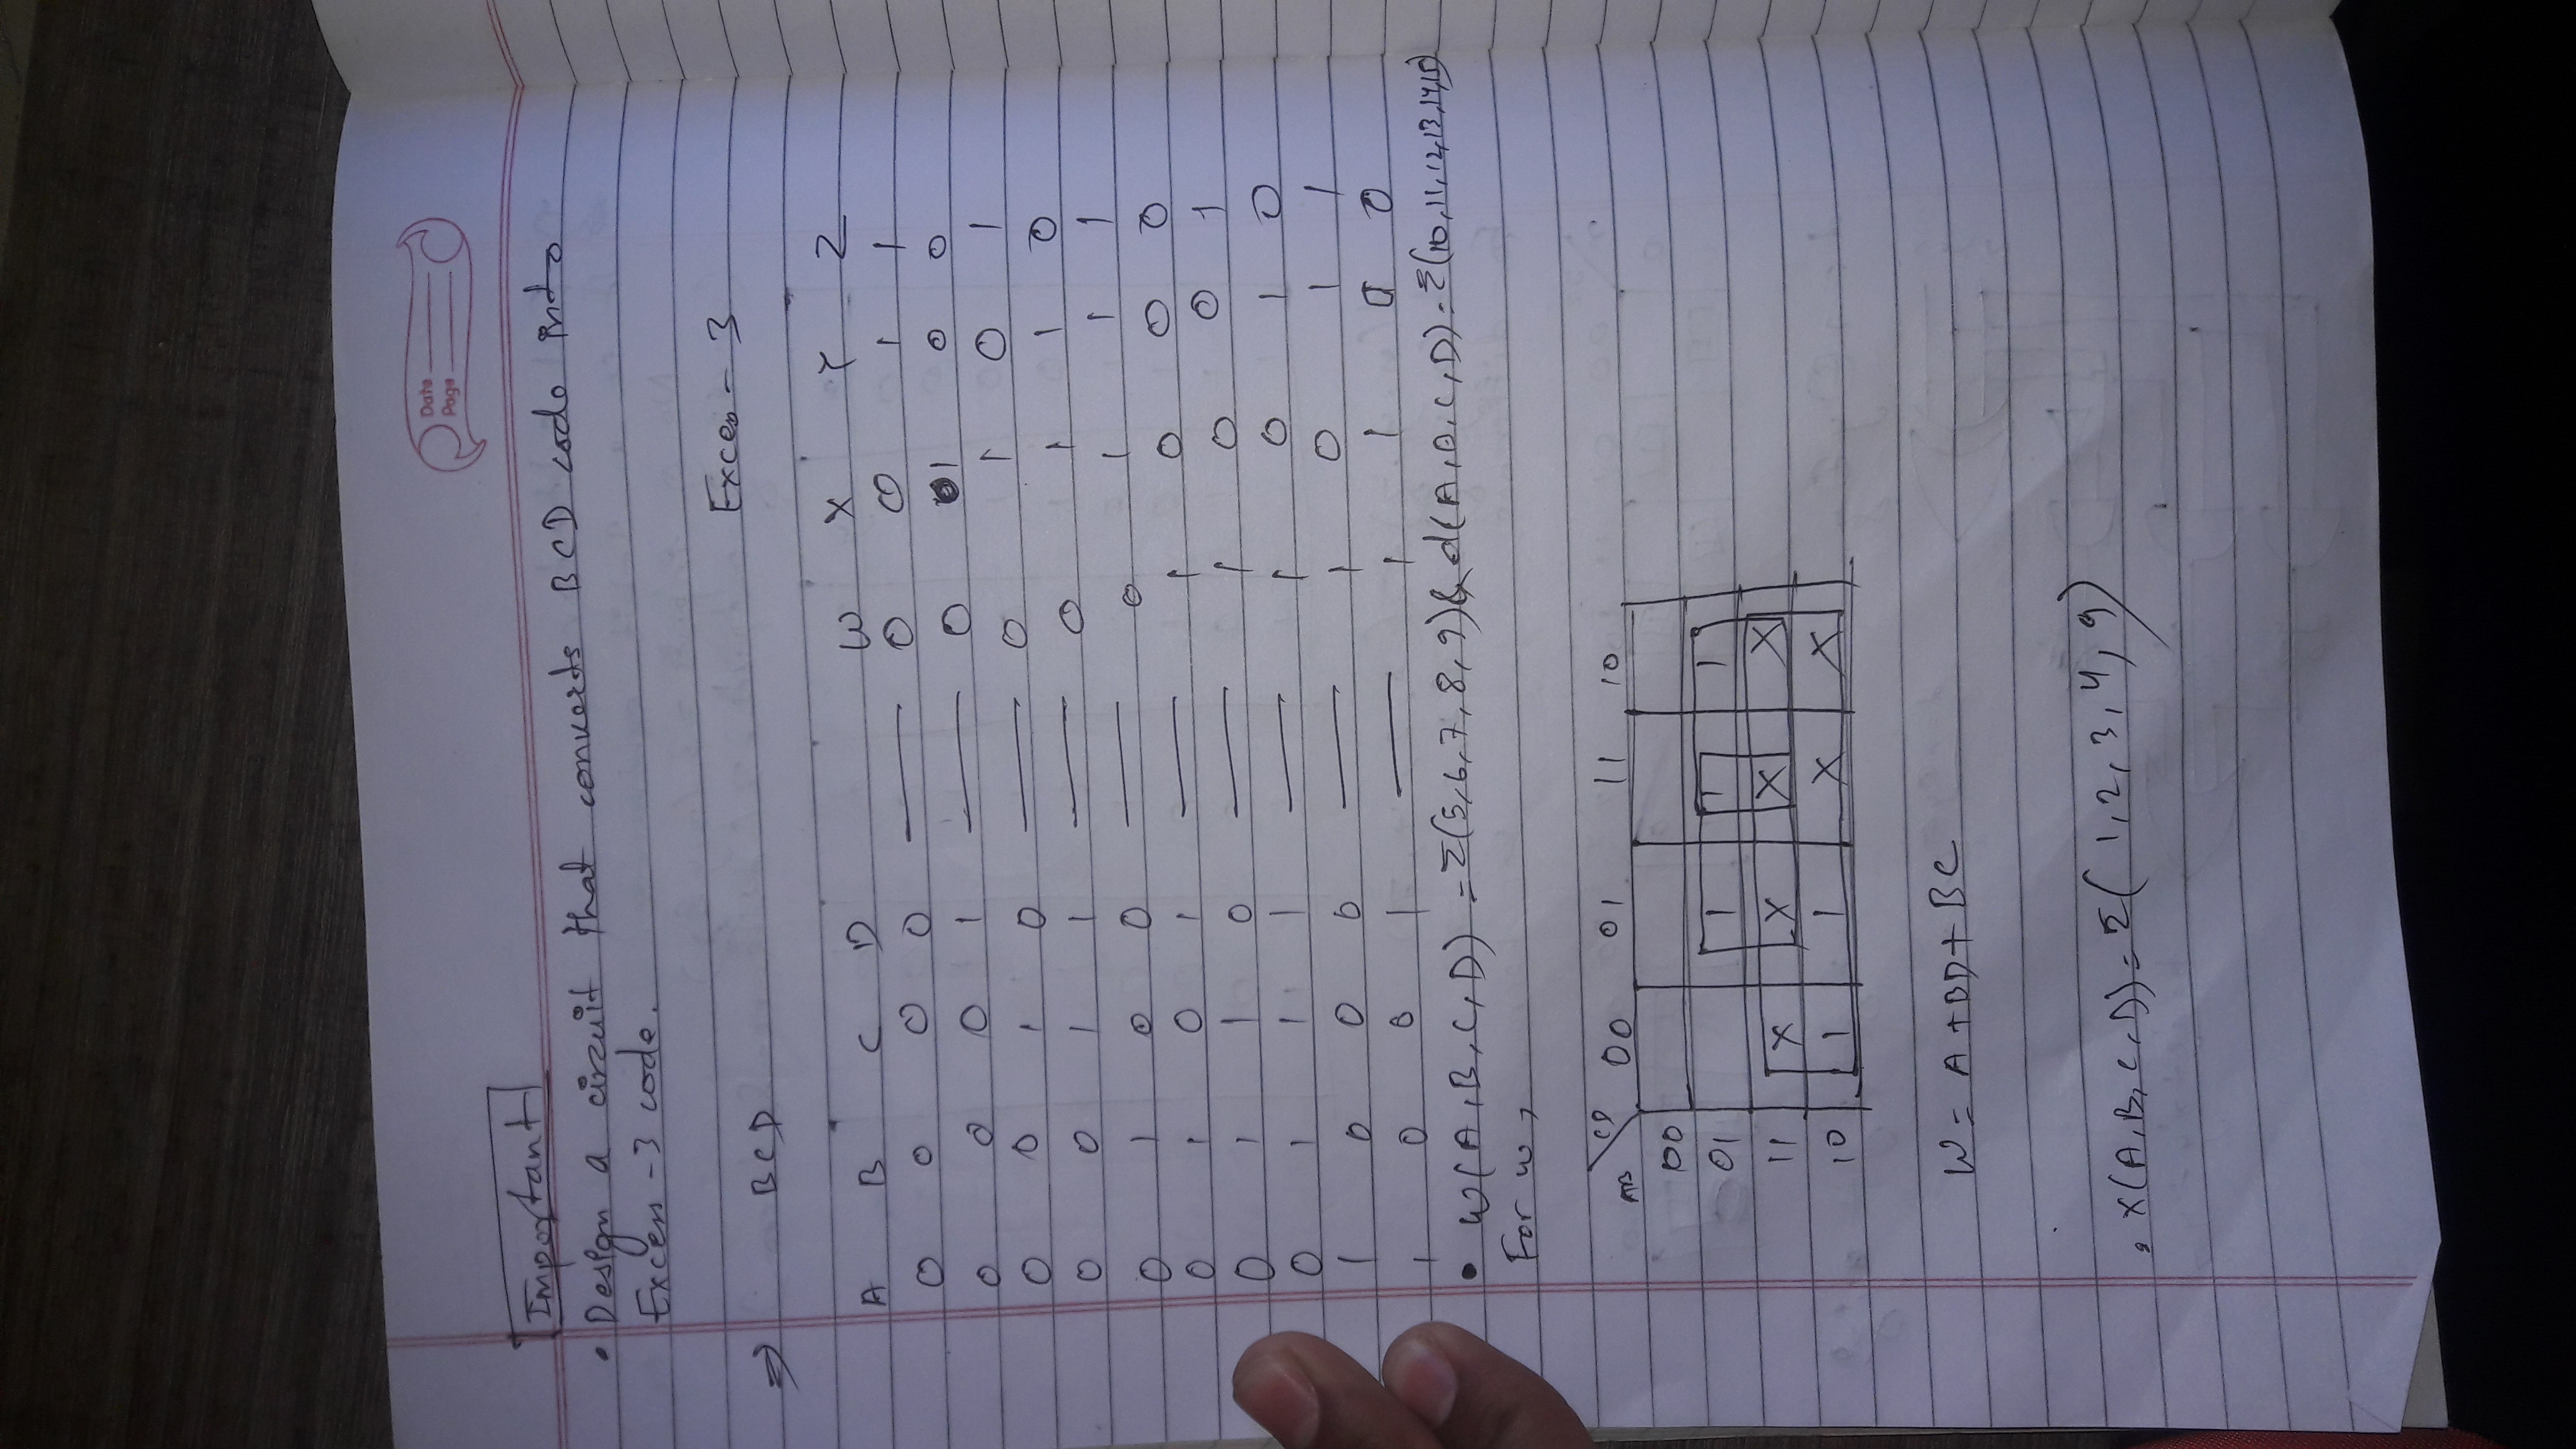 Date
Page
Important
• Design a circuit that converts BCD code into
Excess-3 code.
Excess - 3
⇒ BCD
A B C D W X Y Z
0 0 0 0 — 0 0 1 1
0 0 0 1 — 0 1 0 0
0 0 1 0 — 0 1 0 1
0 0 1 1 — 0 1 1 0
0 1 0 0 — 0 1 1 1
0 1 0 1 — 1 0 0 0
0 1 1 0 — 1 0 0 1
0 1 1 1 — 1 0 1 0
1 0 0 0 — 1 0 1 1
1 0 0 1 — 1 1 0 0
• W(A,B,C,D) = Σ(5,6,7,8,9) & d(A,B,C,D) = Σ(10,11,12,13,14,15)
For w,
AB CD 00 01 11 10
00
01 1 1 1
11 X X X X
10 1 1 X X
W = A + BD + BC
• X(A,B,C,D) = Σ(1,2,3,4,9)